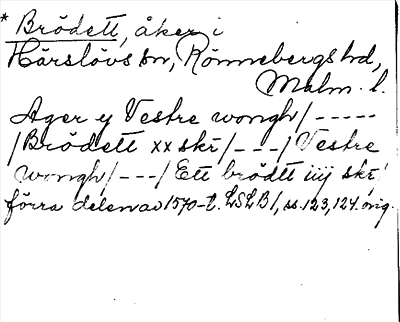 * Brödett, åker i
Härslövs sn, Rönnebergs hd,
Malm. l.
Ager y Vestre wongh/-----
/Brödett xx skr/---/Vestre
wongh/---/Ett brödtt iiij skr/
förra delen av 1570-t. LSLB1, ss. 123, 124. orig.